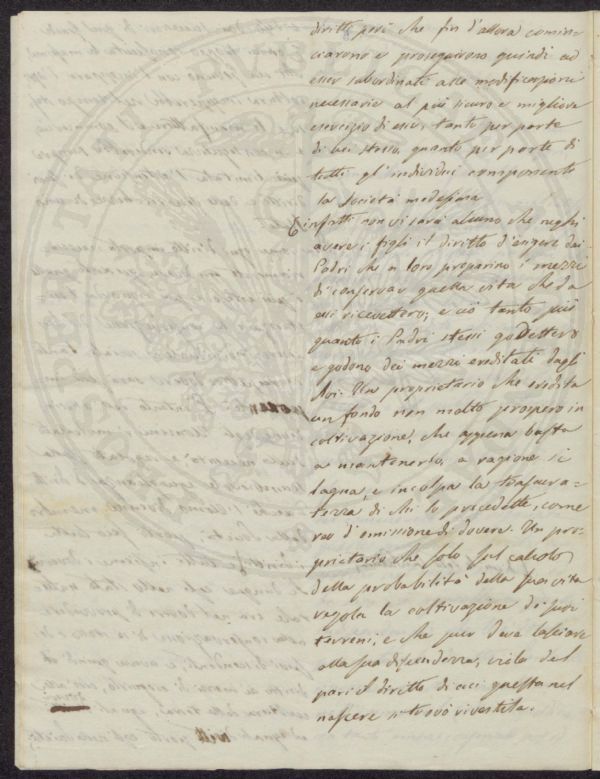 diritti però che fin d'allora comin-
ciarono e proseguirono quindi ad
esser subordinati alle modificazioni
necessarie al più sicuro e migliore
esercizio di essi, tanto per parte
di lui stesso, quanto per parte di
tutti gl'individui componente
la società medesima
E infatti non vi sarà alcuno che neghi
avere i figli il diritto d'esigere dai
Padri che a loro preparino i mezzi
di conservar quella vita che da
essi ricevettero; e ciò tanto più
quanto i Padri stessi godettero
e godono dei mezzi ereditati dagli
Avi. Un proprietario che eredita
un fondo non molto prospero in
coltivazione, che appena basta
a mantenerlo, a ragione si
lagna, e incolpa la trascura-
tezza di chi lo precedette, come
reo d'omissione di dovere. Un pro-
prietario che solo sul calcolo
della probabilità della sua vita
regola la coltivazione di suoi
terreni, e che pur deve lasciare
alla sua discendenza, viola del
pari il diritto di cui questa nel
nascere si trovò rivestita.